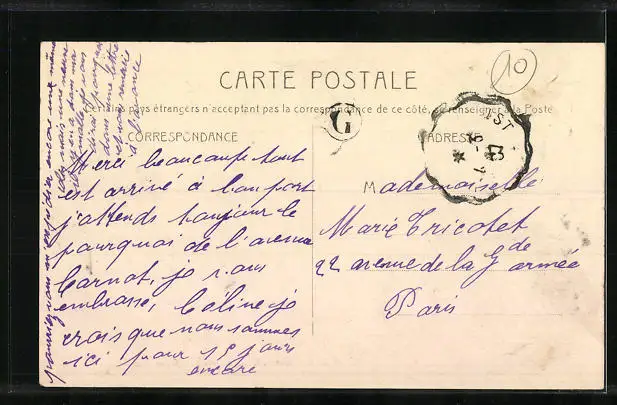 10
CARTE POSTALE
Certains pays étrangers n'acceptant pas la correspondance de ce côté, se renseigner à la Poste
CORRESPONDANCE
ADRESSE
G
IST
15 - 7
13
Merci beaucoup tout
est arrivé à bon port
j'attends toujours le
pourquoi de l'avenue
Carnot, je vous
embrasse, Caline je
crois que nous sommes
ici pour 15 jours
encore
Mademoiselle
Marie Tricotet
22 avenue de la Gde armée
Paris
pourriez vous m'expédier encore une même
dans une lettre